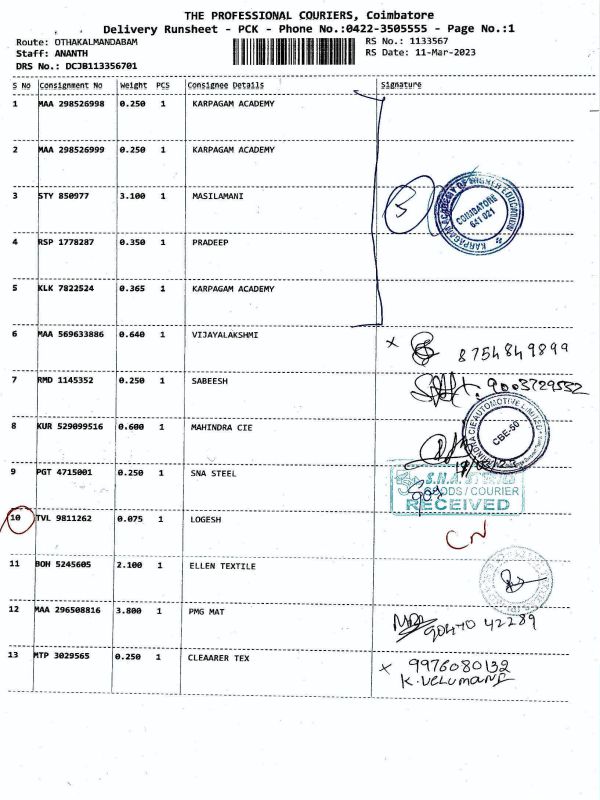 THE PROFESSIONAL COURIERS, Coimbatore
Delivery Runsheet - PCK - Phone No.:0422-3505555 - Page No.:1
Route: OTHAKALMANDABAM RS No.: 1133567
Staff: ANANTH RS Date: 11-Mar-2023
DRS No.: DCJB113356701
S No Consignment No Weight PCS Consignee Details Signature
1 MAA 298526998 0.250 1 KARPAGAM ACADEMY
2 MAA 298526999 0.250 1 KARPAGAM ACADEMY
3 STY 850977 3.100 1 MASILAMANI
5
KARPAGAM ACADEMY OF HIGHER EDUCATION
COIMBATORE
641 021
4 RSP 1778287 0.350 1 PRADEEP
5 KLK 7822524 0.365 1 KARPAGAM ACADEMY
6 MAA 569633886 0.640 1 VIJAYALAKSHMI x 8754849899
7 RMD 1145352 0.250 1 SABEESH 9003729552
8 KUR 529099516 0.600 1 MAHINDRA CIE
MAHINDRA CIE AUTOMOTIVE LIMITED
CBE-50
9 PGT 4715001 0.250 1 SNA STEEL
GOODS / COURIER
RECEIVED
10 TVL 9811262 0.075 1 LOGESH CN
11 BOH 5245605 2.100 1 ELLEN TEXTILE
12 MAA 296508816 3.800 1 PMG MAT 90470 42289
13 MTP 3029565 0.250 1 CLEAARER TEX x 9976080132
K. VELUMANI